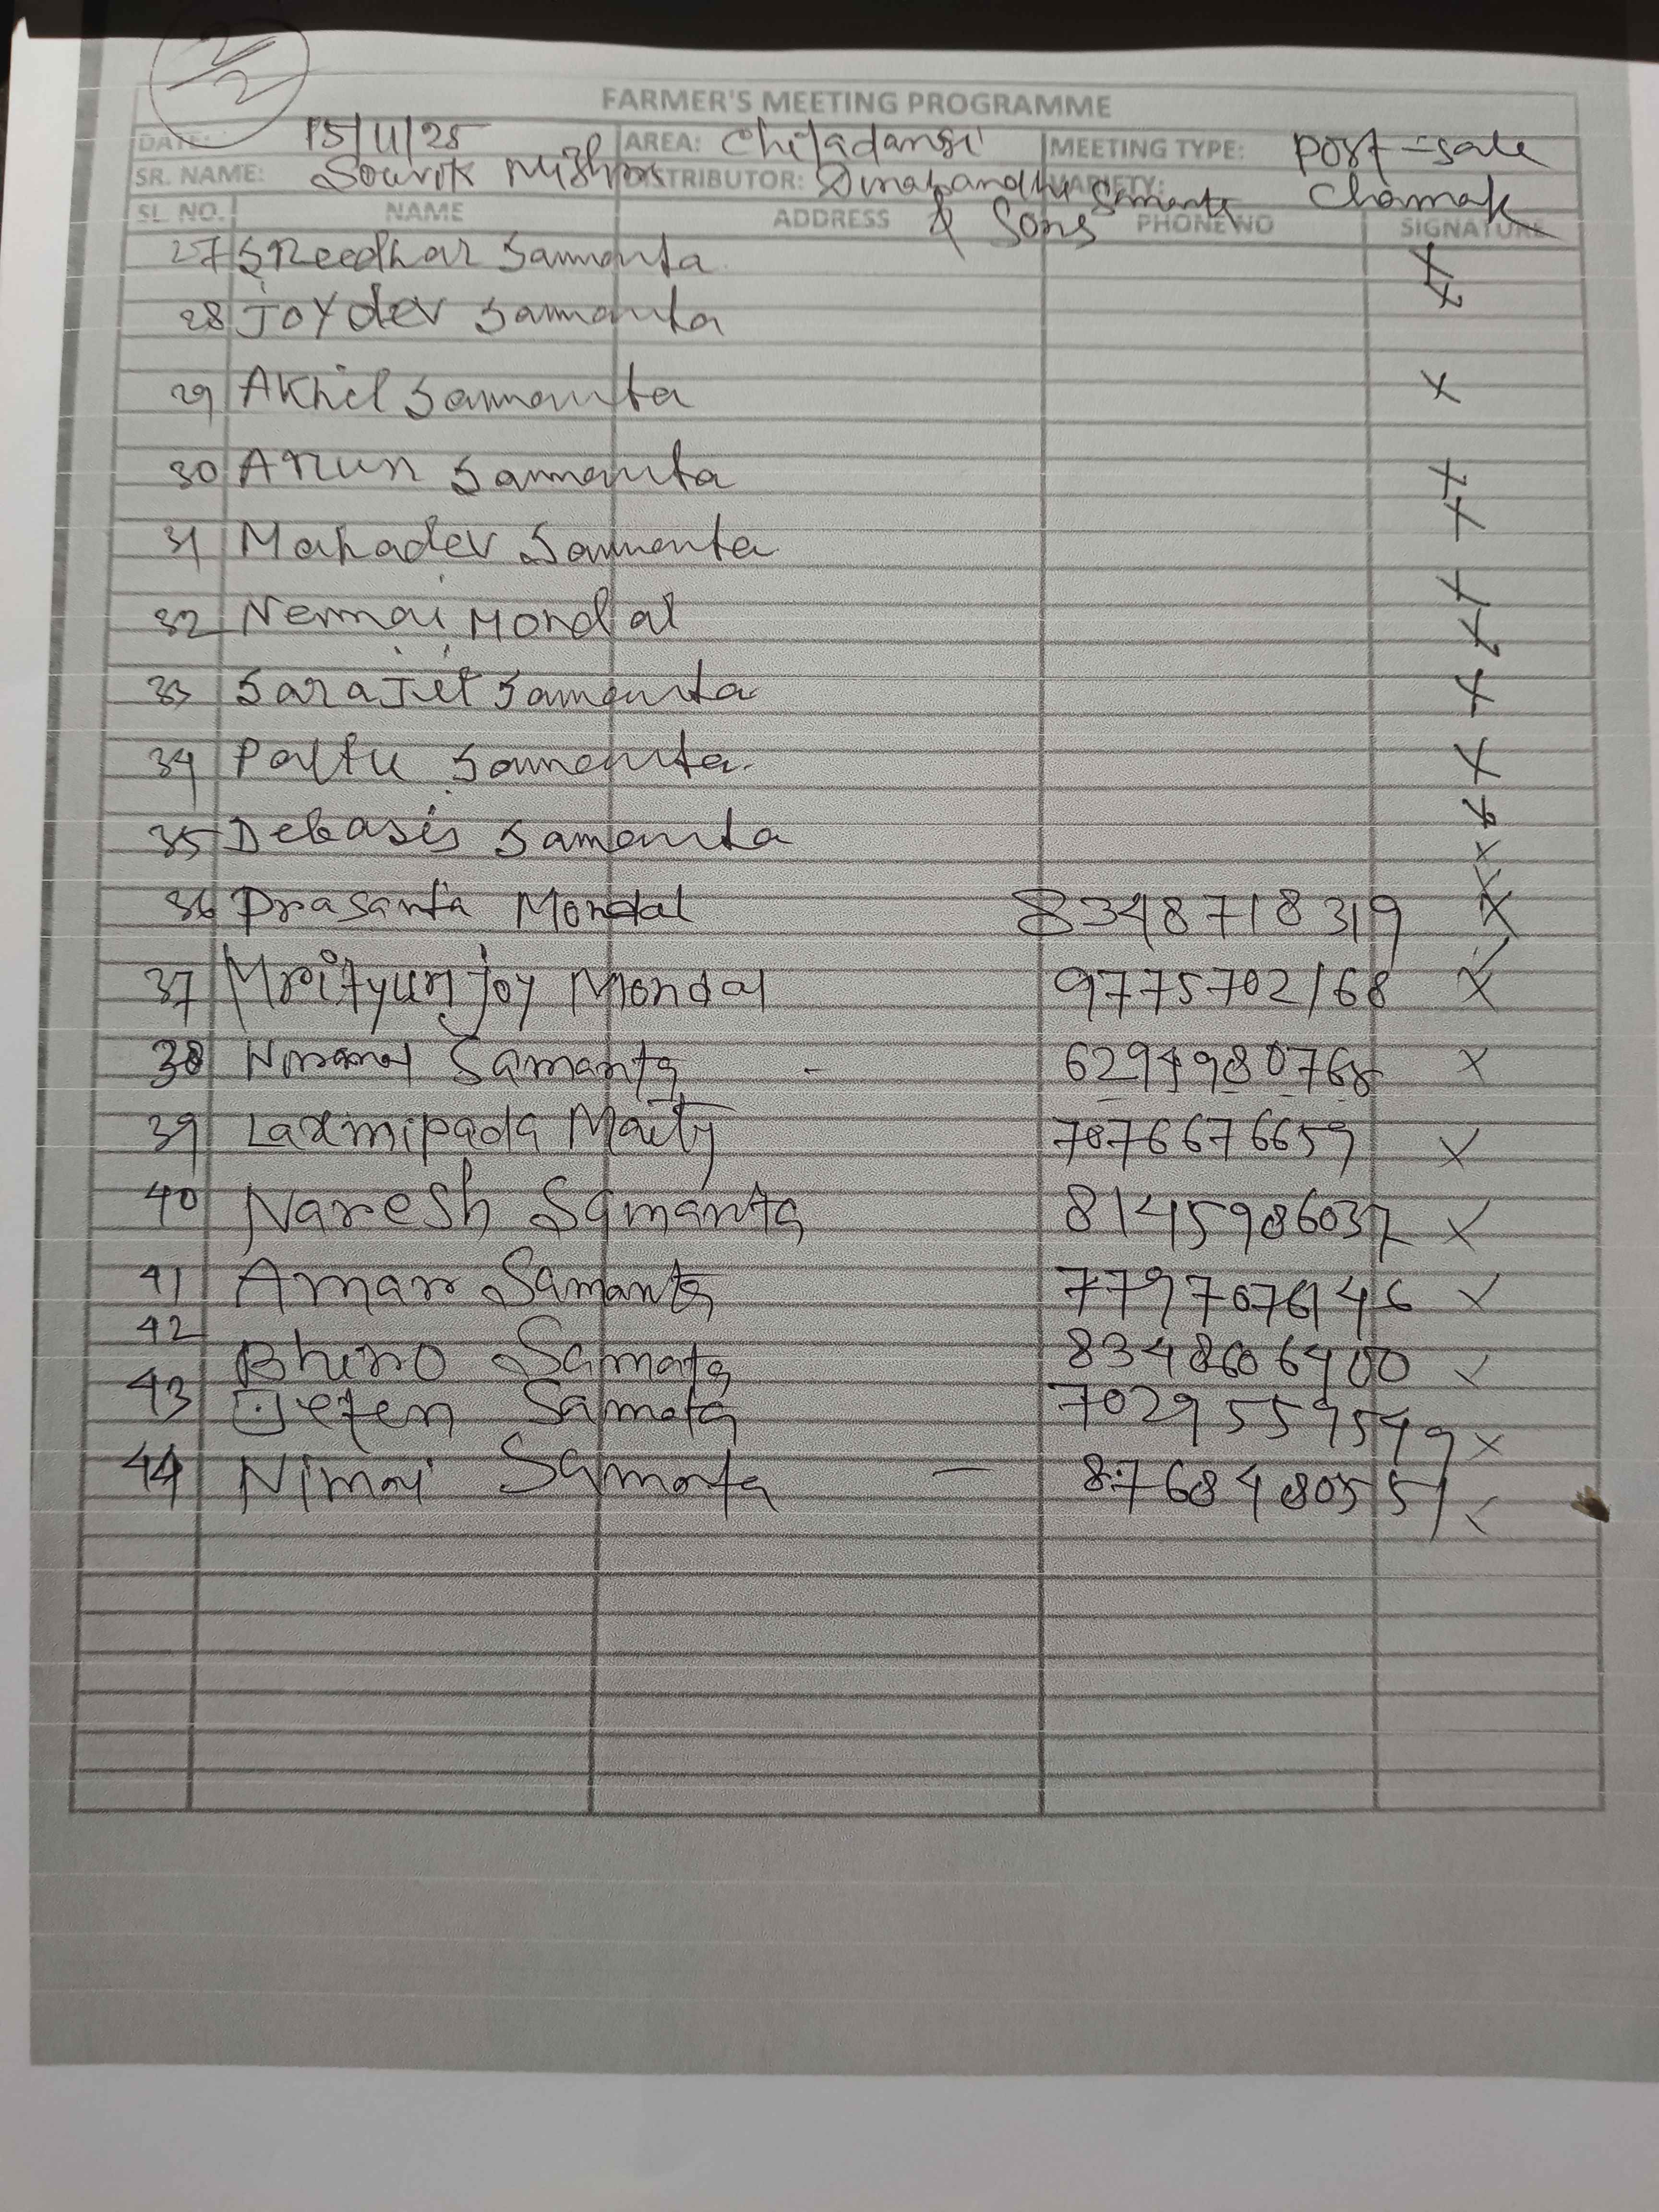 2/2
FARMER'S MEETING PROGRAMME
DATE: 15/11/25 AREA: Chitadangi MEETING TYPE: Post-sale
SR. NAME: Souvik Mishra DISTRIBUTOR: Dinabandhu Samanta & Sons VARIETY: Chamak
SL. NO. NAME ADDRESS PHONE NO SIGNATURE
27 Sreedhar Samanta x
28 Joydev Samanta x
29 Akhil Samanta x
30 Arun Samanta x
31 Mahadev Samanta x
32 Nemai Mondal x
33 Sarajit Samanta x
34 Paltu Samanta x
35 Debasis Samanta x
36 Prasanta Mondal 8348718319 x
37 Mrityunjoy Mondal 9775702168 x
38 Samanta - x
39 Laxmipada Maity 7076676659 x
40 Naresh Samanta 8145986037 x
41 Amar Samanta 7797076146 x
42 Samata x
43 Samata x
44 Nimai Samanta - 8768480551 x